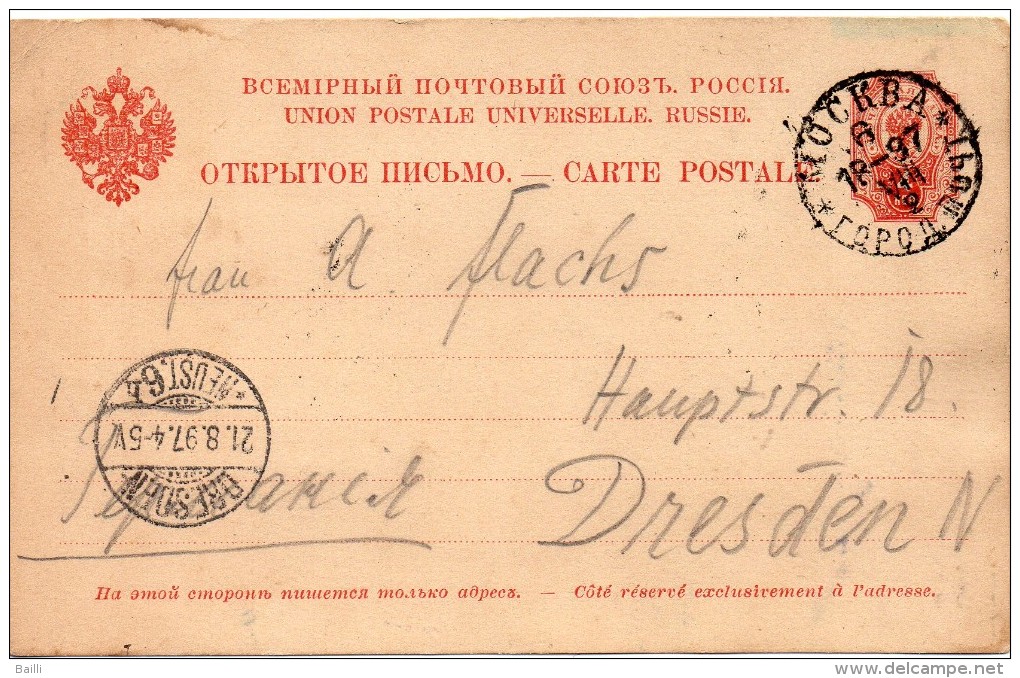 ВСЕМІРНЫЙ ПОЧТОВЫЙ СОЮЗЪ. РОССІЯ.
UNION POSTALE UNIVERSELLE. RUSSIE.
ОТКРЫТОЕ ПИСЬМО. — CARTE POSTALE
МОСКВА
97
VIII
ГОРОД
Frau A. Flachs
Hauptstr. 18.
*NEUST. 64
21.8.97.4-5V.
DRESDEN
Германія
Dresden N
На этой сторонѣ пишется только адресъ. — Côté réservé exclusivement à l'adresse.
Bailli
delcampe.net